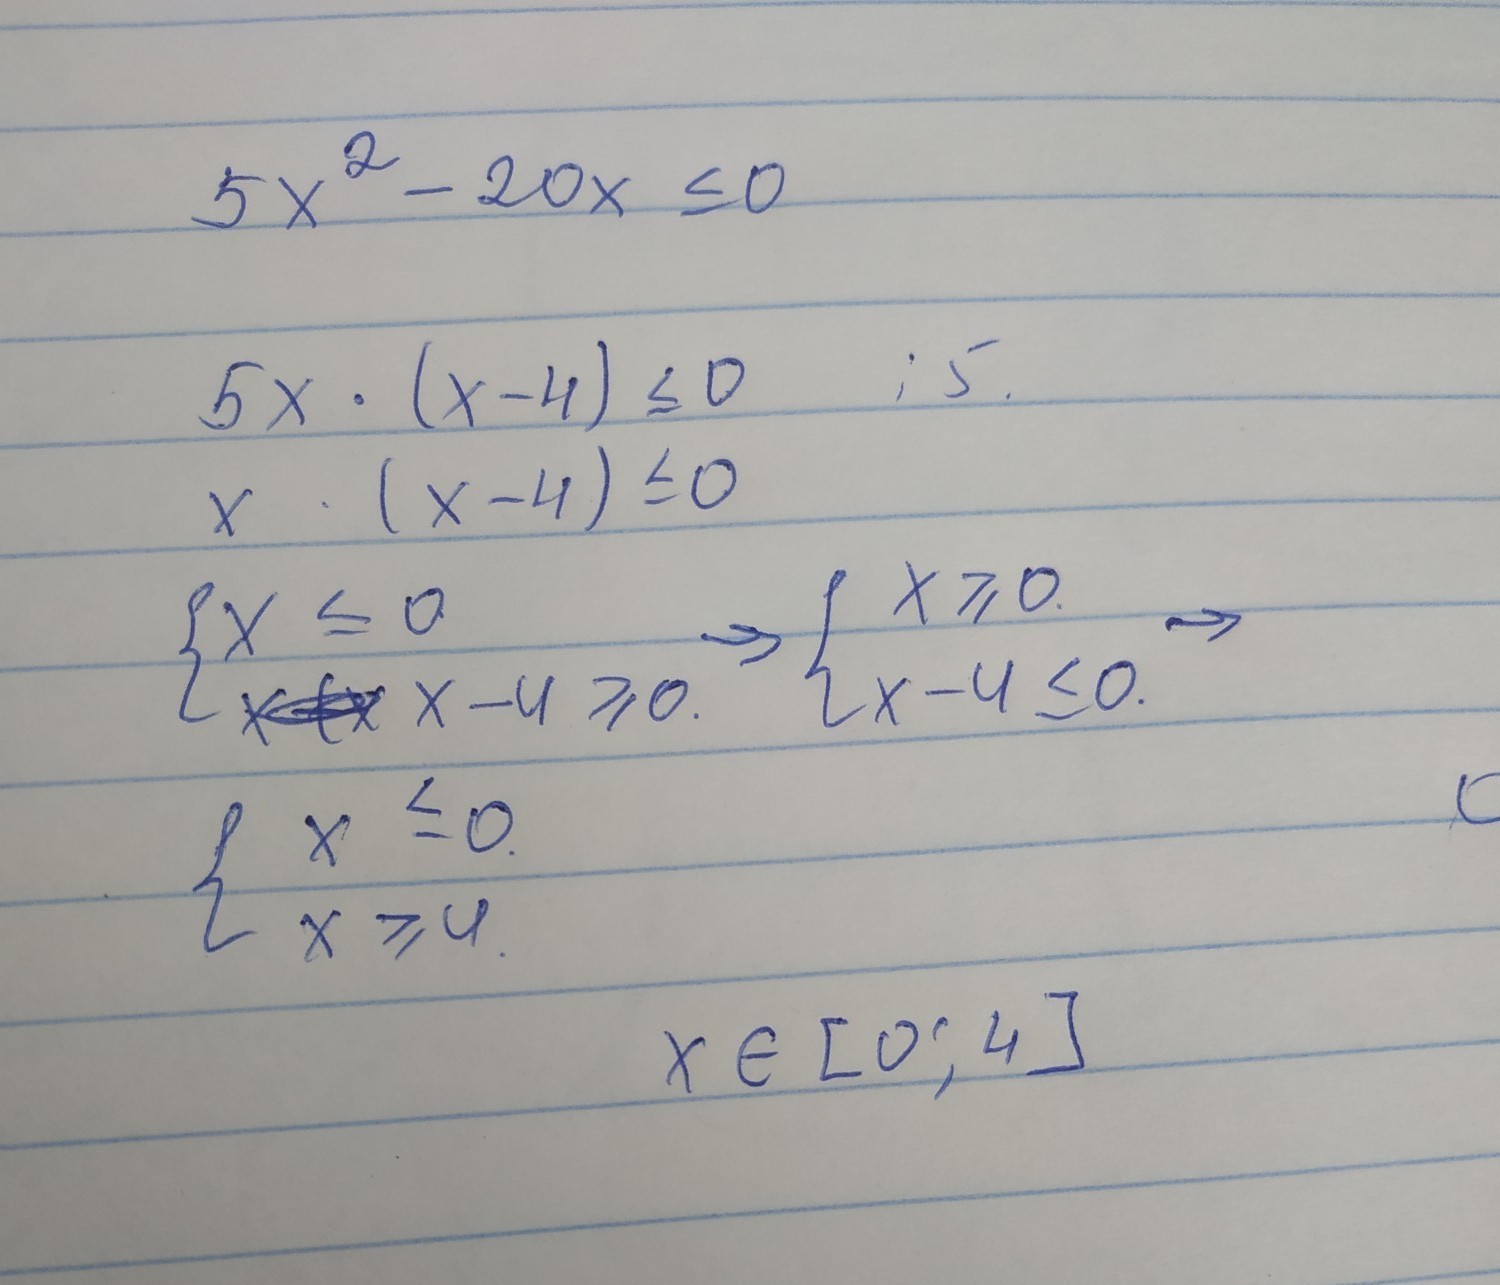 5x² - 20x ≤ 0
5x · (x-4) ≤ 0 : 5.
x · (x-4) ≤ 0
{ x ≤ 0 → { x ≥ 0. →
x-4 ≥ 0. x-4 ≤ 0.
{ x ≤ 0.
x ≥ 4.
x ∈ [0; 4]